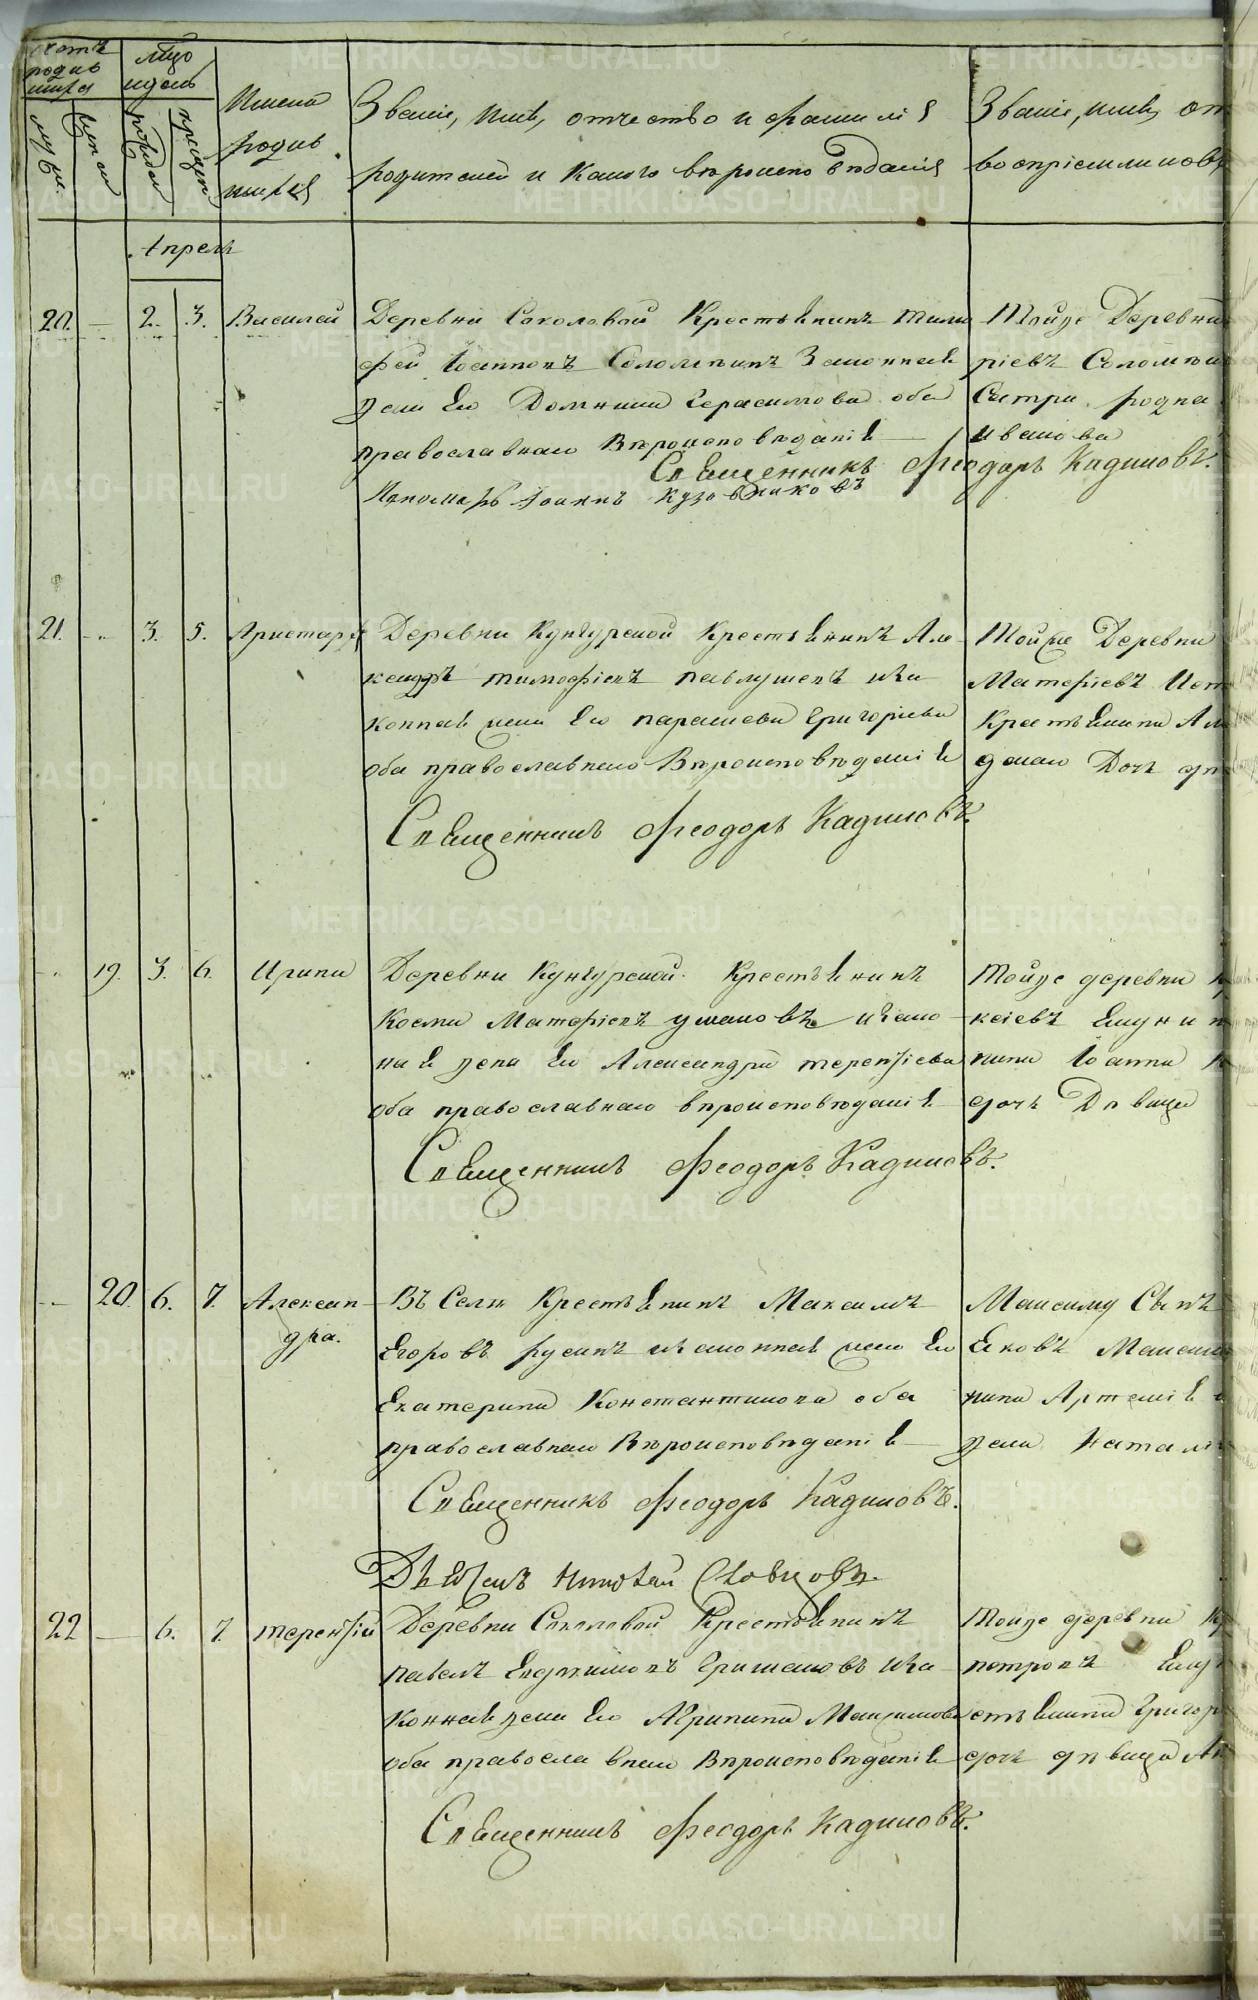 счетъ родив шихся
мѣсяцъ и день
муж.
женск
рожден
крещен
Имена родив шихся
Званіе, имя, отчество и фамилія
родителей и какого вѣроисповѣданія
Званіе, имя, от
воспріемников
Апрель
20. — 2. 3. Василій
Деревни Соколовой Крестьянинъ Тимо
фей Іоанновъ Соломеинъ Законная
жена Его Домника Герасимова оба
православнаго Вѣроисповѣданія
Священникъ Феодоръ Кадиковъ.
Пономарь Іоаннъ Кузовниковъ
Тойже Деревни
ріевъ Соломеин
Сестра родна
Иванова
21. 3. 5. Аристархъ
Деревни Кунгурской Крестьянинъ Але
ксандръ Тимофіевъ Павлушевъ иза
конная жена Его Параскева Григоріева
оба православнаго Вѣроисповѣданія
Священникъ Феодоръ Кадиковъ.
Тойже Деревни
Матѳіевъ
Крестьянина
Дочь
19. 3. 6. Ирина
Деревни Кунгурской Крестьянинъ
Косма Матѳіевъ Ушаковъ изако
ная жена Его Александра Терентіева
оба православнаго вѣроисповѣданія
Священникъ Феодоръ Кадиковъ.
Тойже деревни
ксіевъ
нина Іоанна
дочь Дѣвица
20. 6. 7. Александра.
Въ Селѣ Крестьянинъ Максимъ
Егоровъ Русинъ изаконная жена Его
Екатерина Константинова оба
православнаго Вѣроисповѣданія
Священникъ Феодоръ Кадиковъ.
Дьячекъ Николай Словцовъ.
Максиму Сынъ
Яковъ Макси
нина Артемія
жена Натал
22 — 6. 7. Терентій
Деревни Соколовой Крестьянинъ
Павелъ Евдокимовъ Гришановъ иза
конная жена Его Агрипина Максимова
оба православнаго Вѣроисповѣданія
Священникъ Феодоръ Кадиковъ.
Тойже деревни Кр
Петровъ
стьянина Григор
дочь дѣвица
METRIKI.GASO-URAL.RU